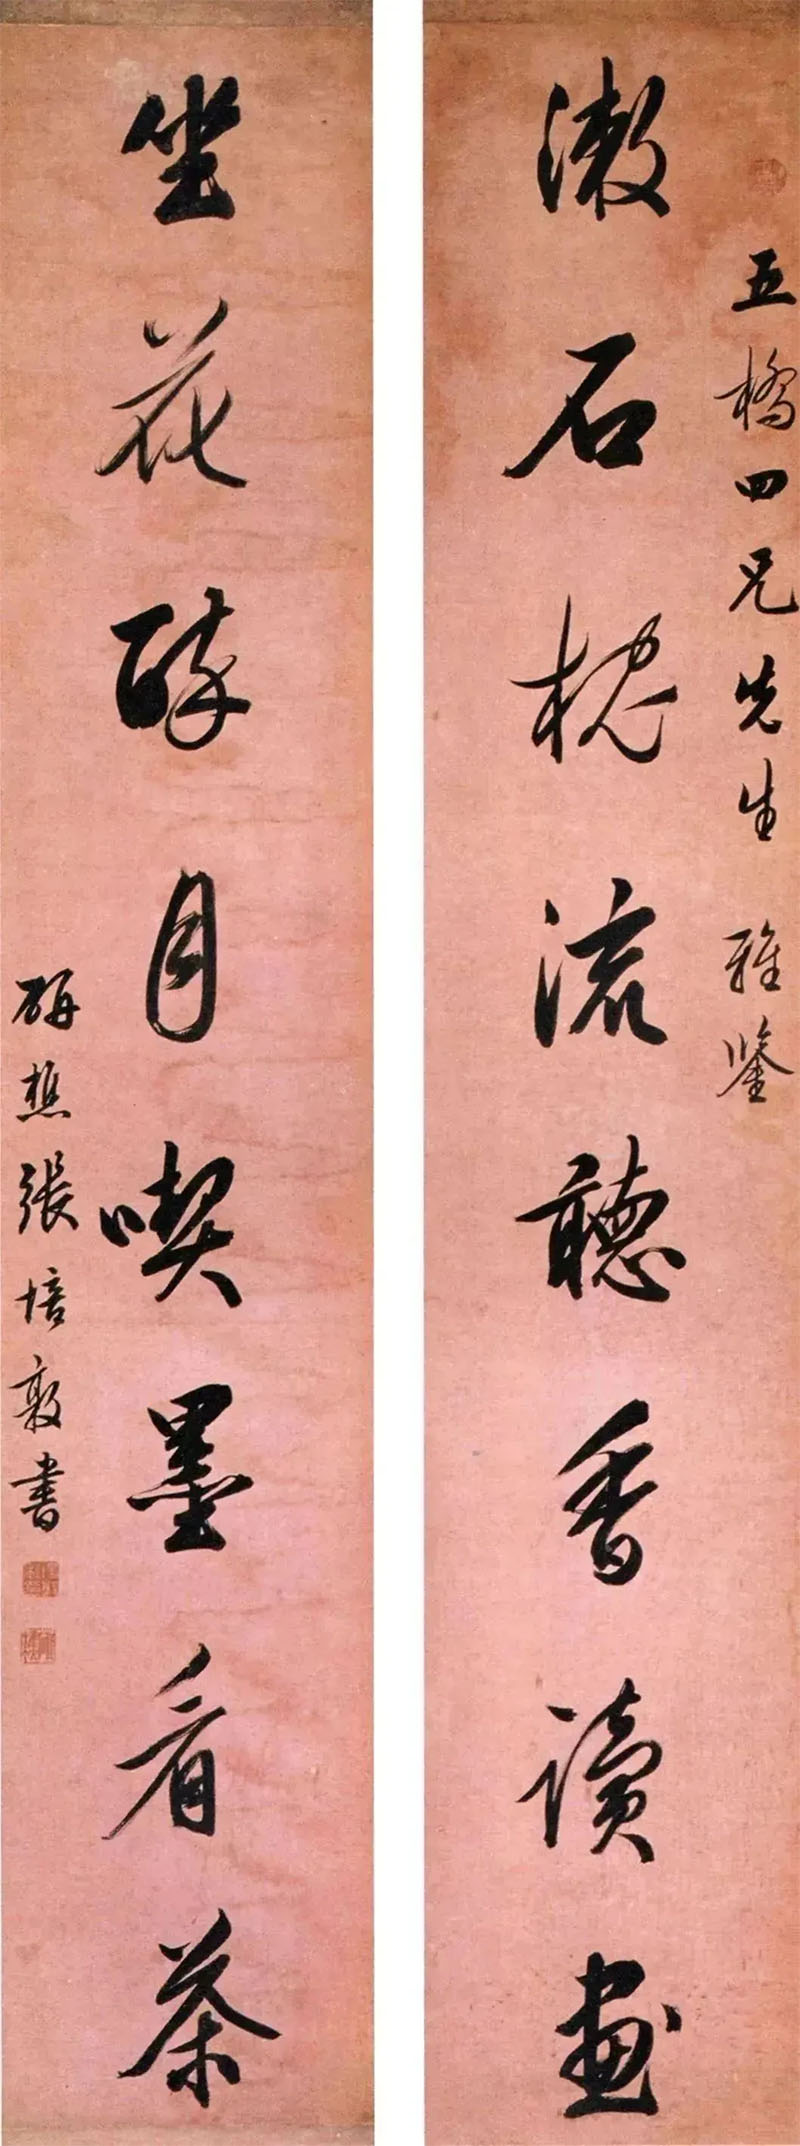 五橋四兄先生 雅鑒
漱石枕流聽香讀畫
坐花醉月喫墨看茶
研樵張培敦書